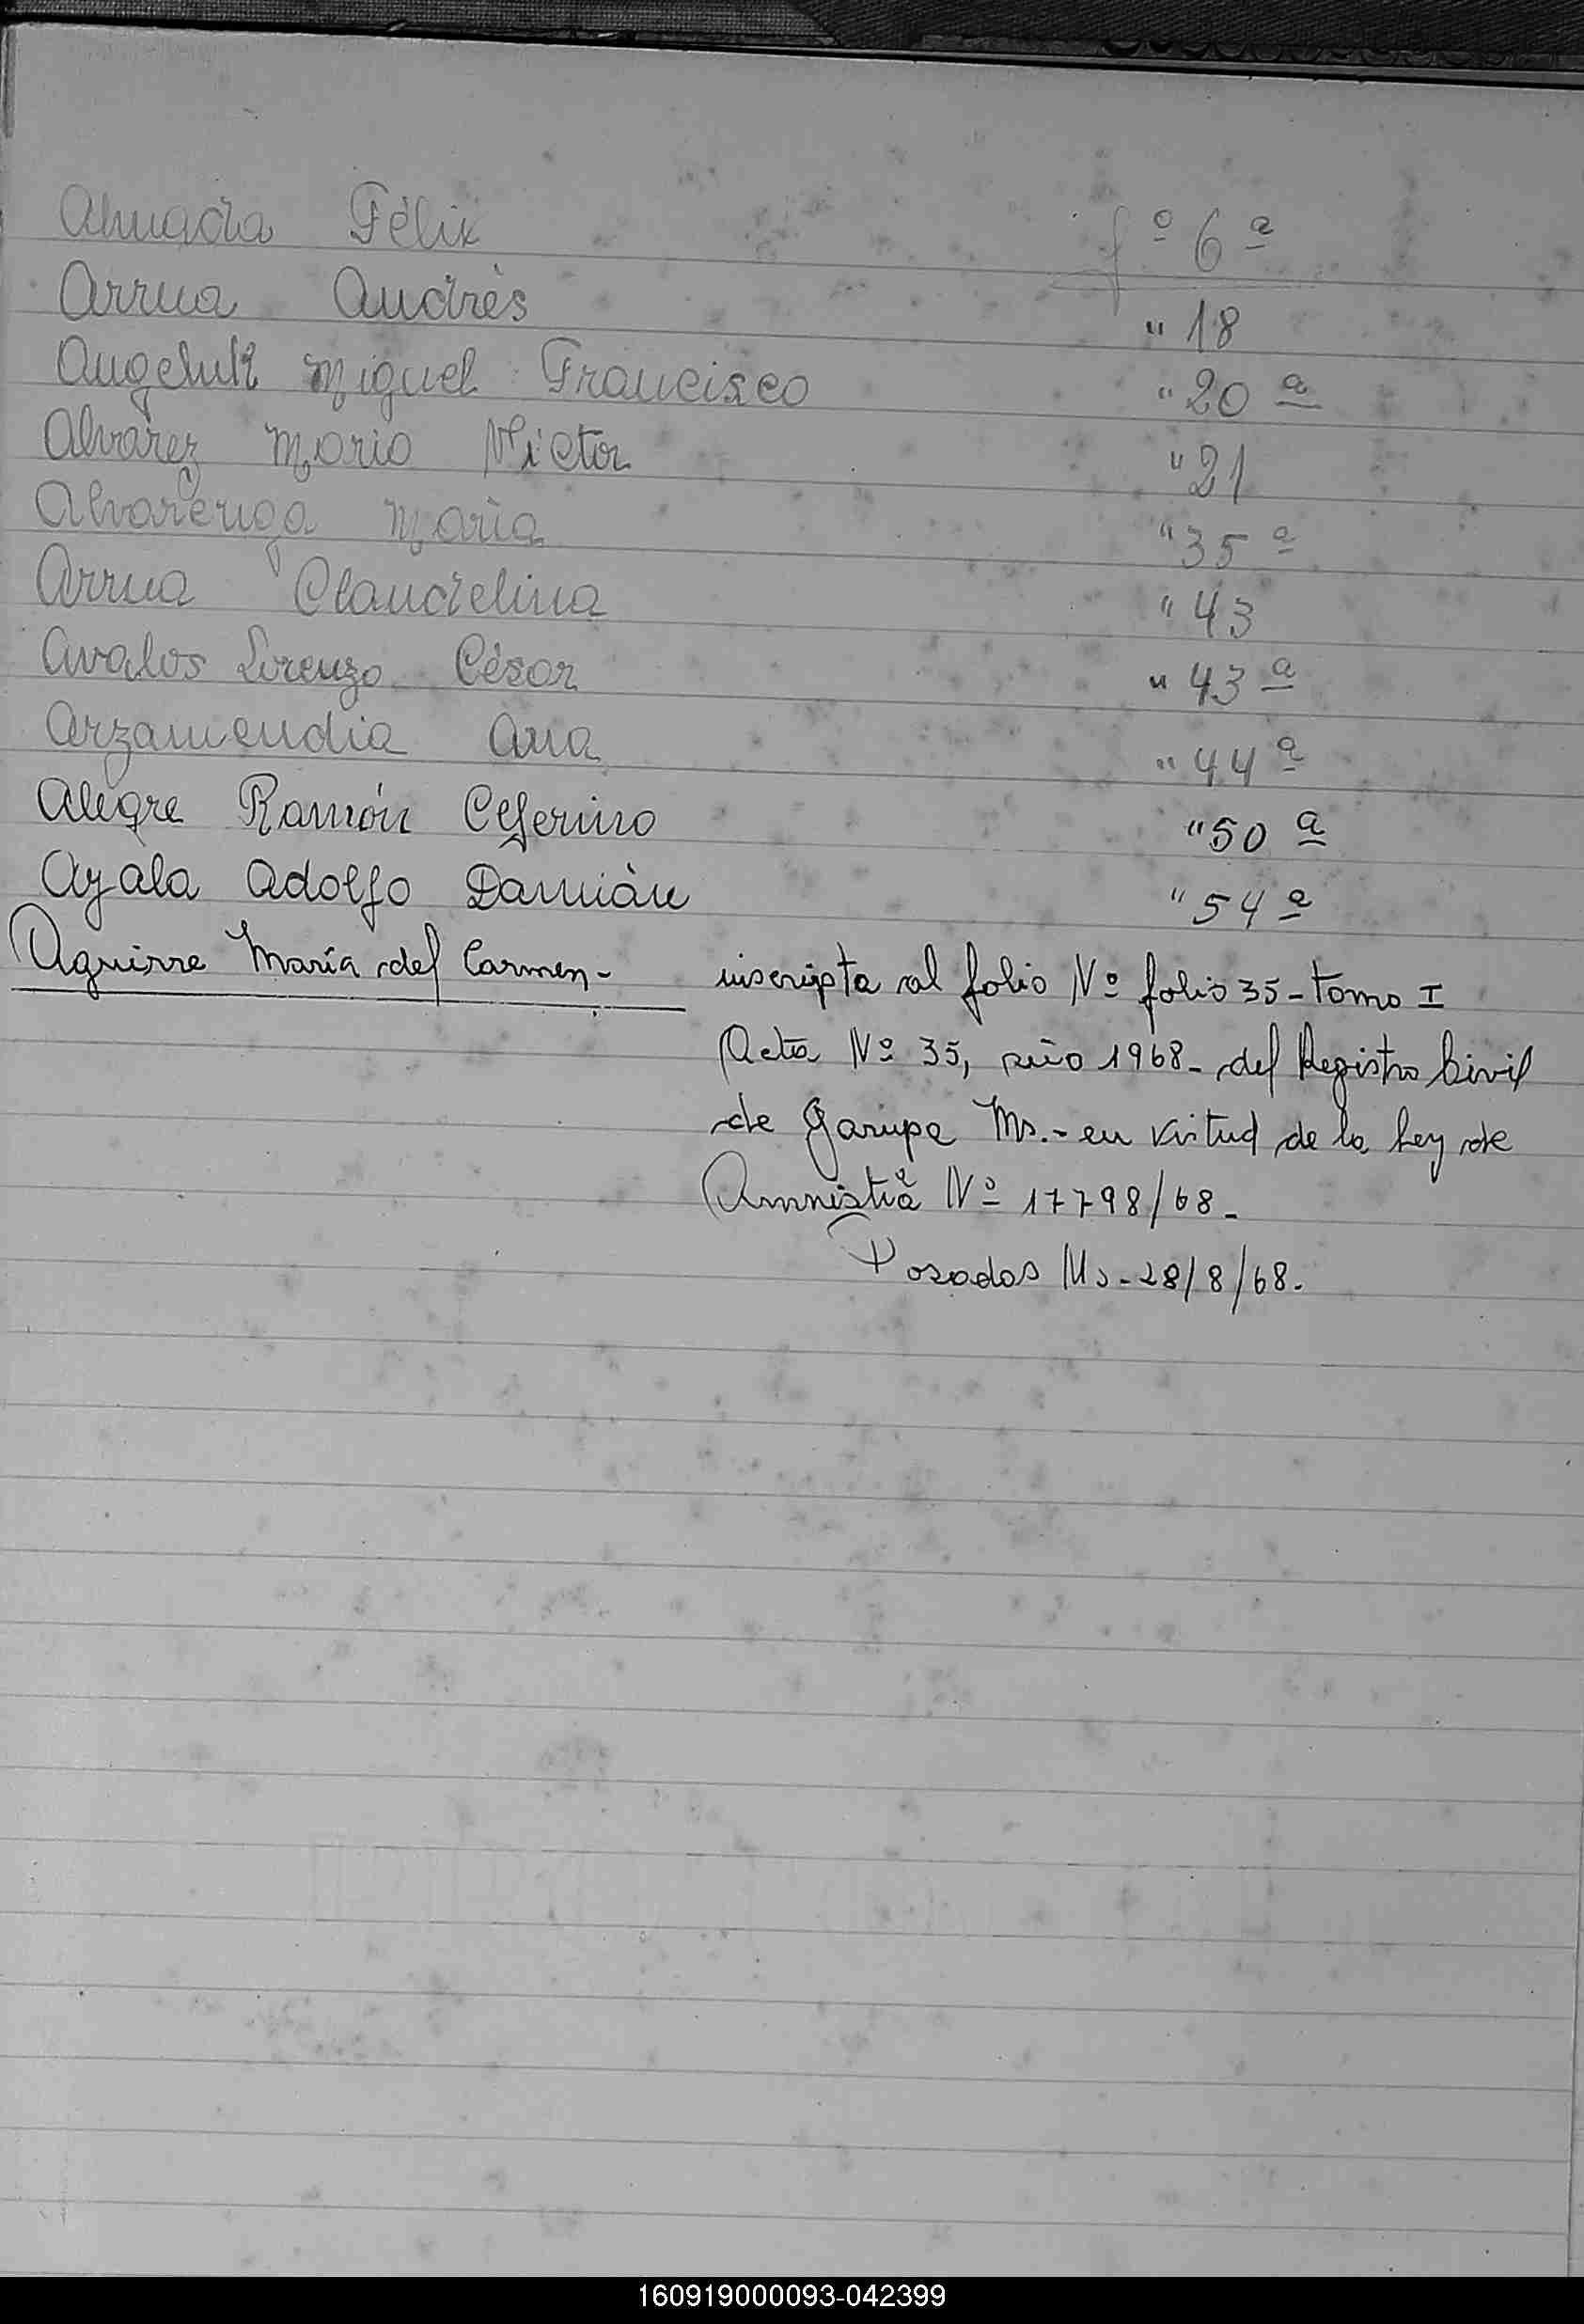 Almada Félix fº 6ª
Arrua Andrés " 18
Miguel Francisco " 20 ª
Alvarez Mario Victor " 21
Alvarenga María " 35 ª
Arrua Claudelina " 43
Avalos Lorenzo César " 43 ª
Arzamendia Ana " 44 ª
Alegre Ramón Ceferino " 50 ª
Ayala Adolfo Damián " 54 ª
Aguirre María del Carmen - inscripta al folio Nº folio 35 - tomo I
Acta Nº 35, año 1968 - del Registro Civil
de Garupa Ms. - en virtud de la Ley de
Amnistía Nº 17798/68 -
Posadas Ms - 28/8/68.
160919000093-042399